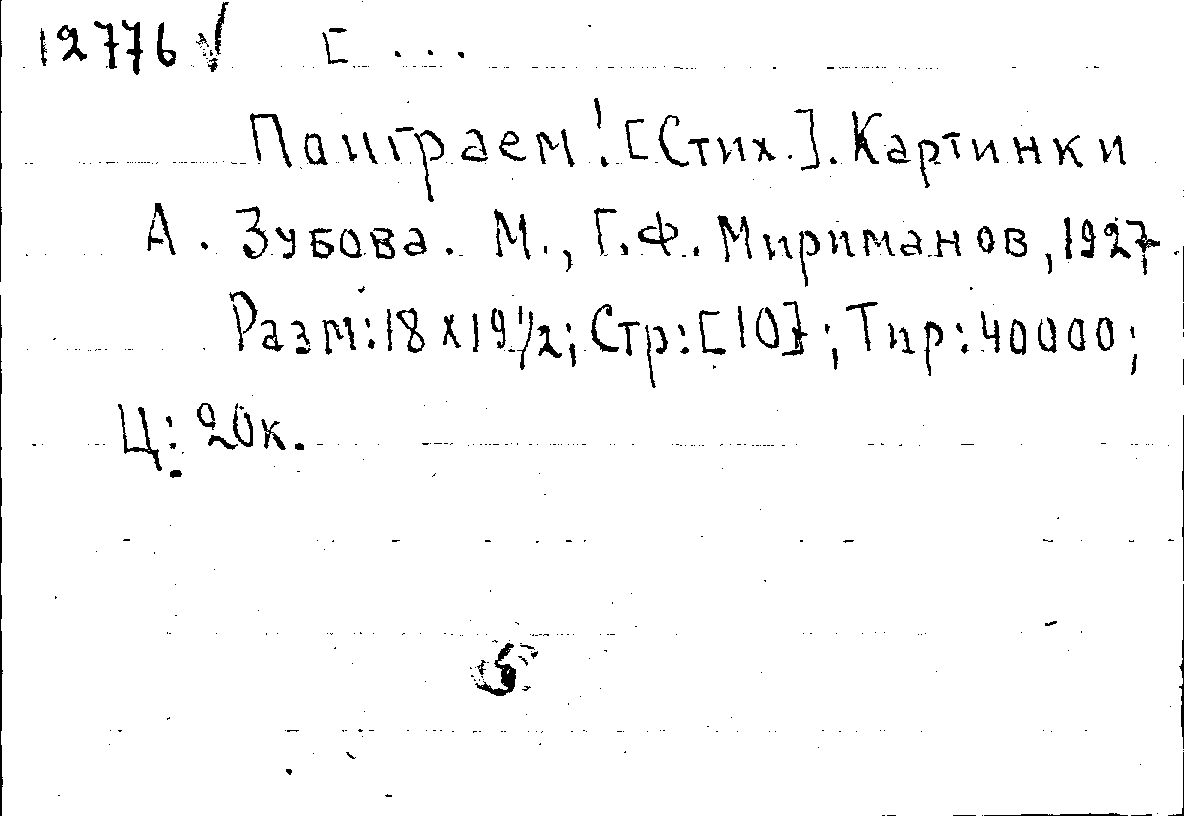 12776 √ [ ...
Поиграем! [Стих.]. Картинки
А. Зубова. М., Г.Ф. Мириманов, 1927.
Разм: 18 x 19 1/2; Стр: [10]; Тир: 40000;
Ц: 20к.